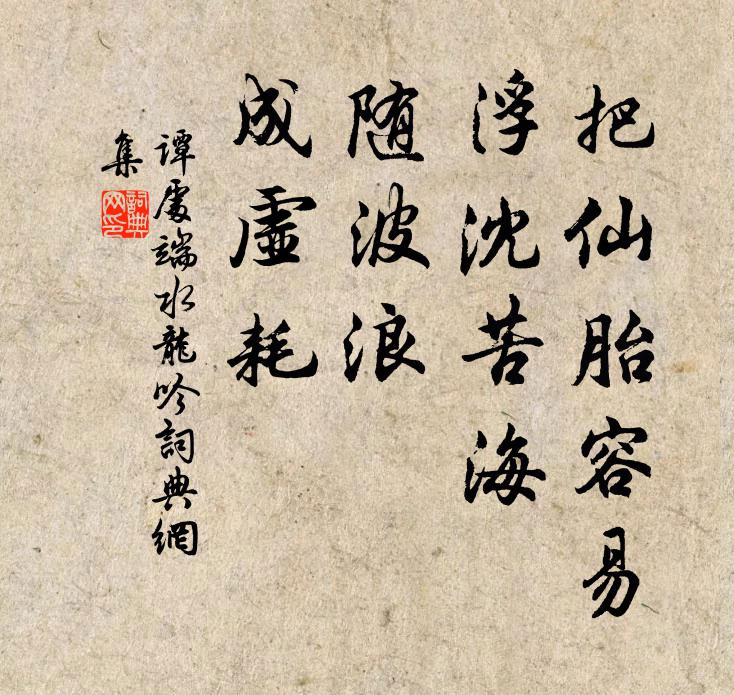 把仙胎容易
浮沈苦海
随波浪
成虛耗
譚處端水龍吟詞典網
集
詞典
网印